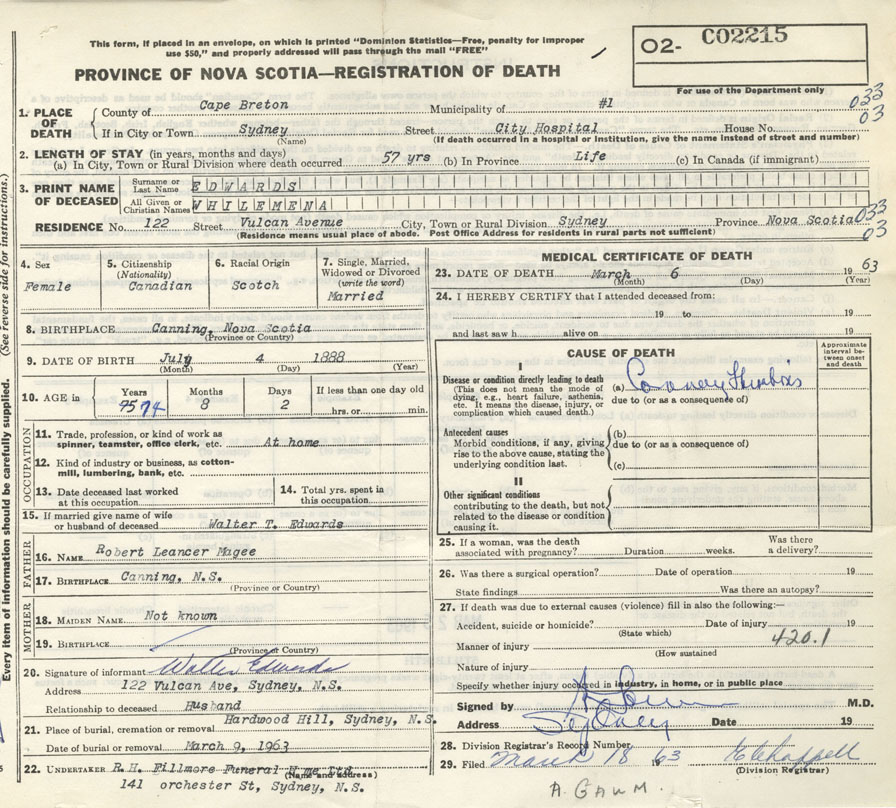 This form, if placed in an envelope, on which is printed "Dominion Statistics—Free, penalty for improper
use $50," and properly addressed will pass through the mail "FREE"
O2- C02215
PROVINCE OF NOVA SCOTIA—REGISTRATION OF DEATH
For use of the Department only
1. PLACE OF DEATH { County of Cape Breton Municipality of #1 033
If in City or Town Sydney Street City Hospital House No. 03
(Name) (If death occurred in a hospital or institution, give the name instead of street and number)
2. LENGTH OF STAY (in years, months and days)
(a) In City, Town or Rural Division where death occurred 57 yrs (b) In Province Life (c) In Canada (if immigrant)
3. PRINT NAME OF DECEASED
Surname or Last Name EDWARDS
All Given or Christian Names WHILEMENA
RESIDENCE No. 122 Street Vulcan Avenue City, Town or Rural Division Sydney Province Nova Scotia 033
(Residence means usual place of abode. Post Office Address for residents in rural parts not sufficient) 03
4. Sex
Female
5. Citizenship
(Nationality)
Canadian
6. Racial Origin
Scotch
7. Single, Married,
Widowed or Divorced
(write the word)
Married
8. BIRTHPLACE Canning, Nova Scotia
(Province or Country)
9. DATE OF BIRTH July 4 1888
(Month) (Day) (Year)
10. AGE in
Years Months Days If less than one day old
74 8 2 hrs. or min.
OCCUPATION
11. Trade, profession, or kind of work as
spinner, teamster, office clerk, etc. At home
12. Kind of industry or business, as cotton-
mill, lumbering, bank, etc.
13. Date deceased last worked
at this occupation
14. Total yrs. spent in
this occupation
15. If married give name of wife
or husband of deceased Walter T. Edwards
FATHER
16. NAME Robert Leancer Magee
17. BIRTHPLACE Canning, N.S.
(Province or Country)
MOTHER
18. MAIDEN NAME Not known
19. BIRTHPLACE
(Province or Country)
20. Signature of informant Walter Edwards
Address 122 Vulcan Ave, Sydney, N.S.
Relationship to deceased Husband
21. Place of burial, cremation or removal Hardwood Hill, Sydney, N.S.
Date of burial or removal March 9, 1963
22. UNDERTAKER R.H. Fillmore Funeral Home Ltd.
(Name and address)
141 orchester St, Sydney, N.S.
MEDICAL CERTIFICATE OF DEATH
23. DATE OF DEATH March 6 1963
(Month) (Day) (Year)
24. I HEREBY CERTIFY that I attended deceased from:
19 to 19
and last saw h alive on 19
CAUSE OF DEATH
Approximate interval between onset and death
I
Disease or condition directly leading to death
(This does not mean the mode of
dying, e.g., heart failure, asthenia,
etc. It means the disease, injury, or
complication which caused death.)
(a) Coronary Thrombosis
due to (or as a consequence of)
Antecedent causes
Morbid conditions, if any, giving
rise to the above cause, stating the
underlying condition last.
(b)
due to (or as a consequence of)
(c)
II
Other significant conditions
contributing to the death, but not
related to the disease or condition
causing it.
25. If a woman, was the death
associated with pregnancy? Duration weeks. Was there
a delivery?
26. Was there a surgical operation? Date of operation 19
State findings Was there an autopsy?
27. If death was due to external causes (violence) fill in also the following:—
Accident, suicide or homicide? Date of injury 19
(State which)
Manner of injury 420.1
(How sustained)
Nature of injury
Specify whether injury occured in industry, in home, or in public place
Signed by M.D.
Address Sydney Date 19
28. Division Registrar's Record Number
29. Filed March 18 1963 E Chappell
(Division Registrar)
A. GAUM.
(See reverse side for instructions.)
Every item of information should be carefully supplied.